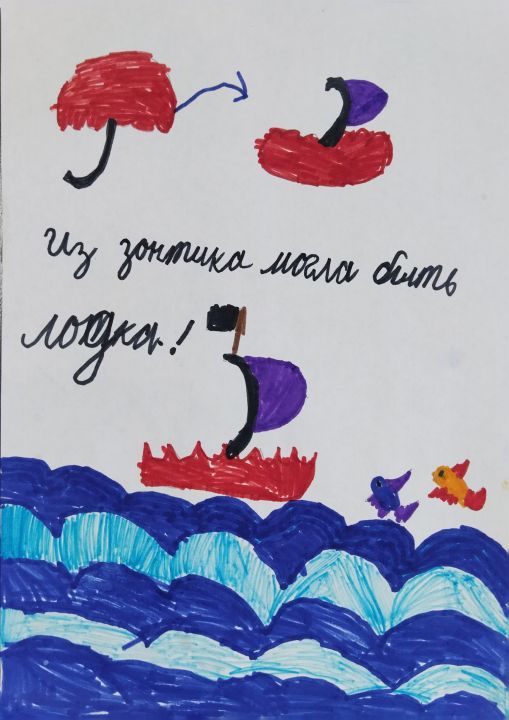 Из зонтика могла быть
лодка!